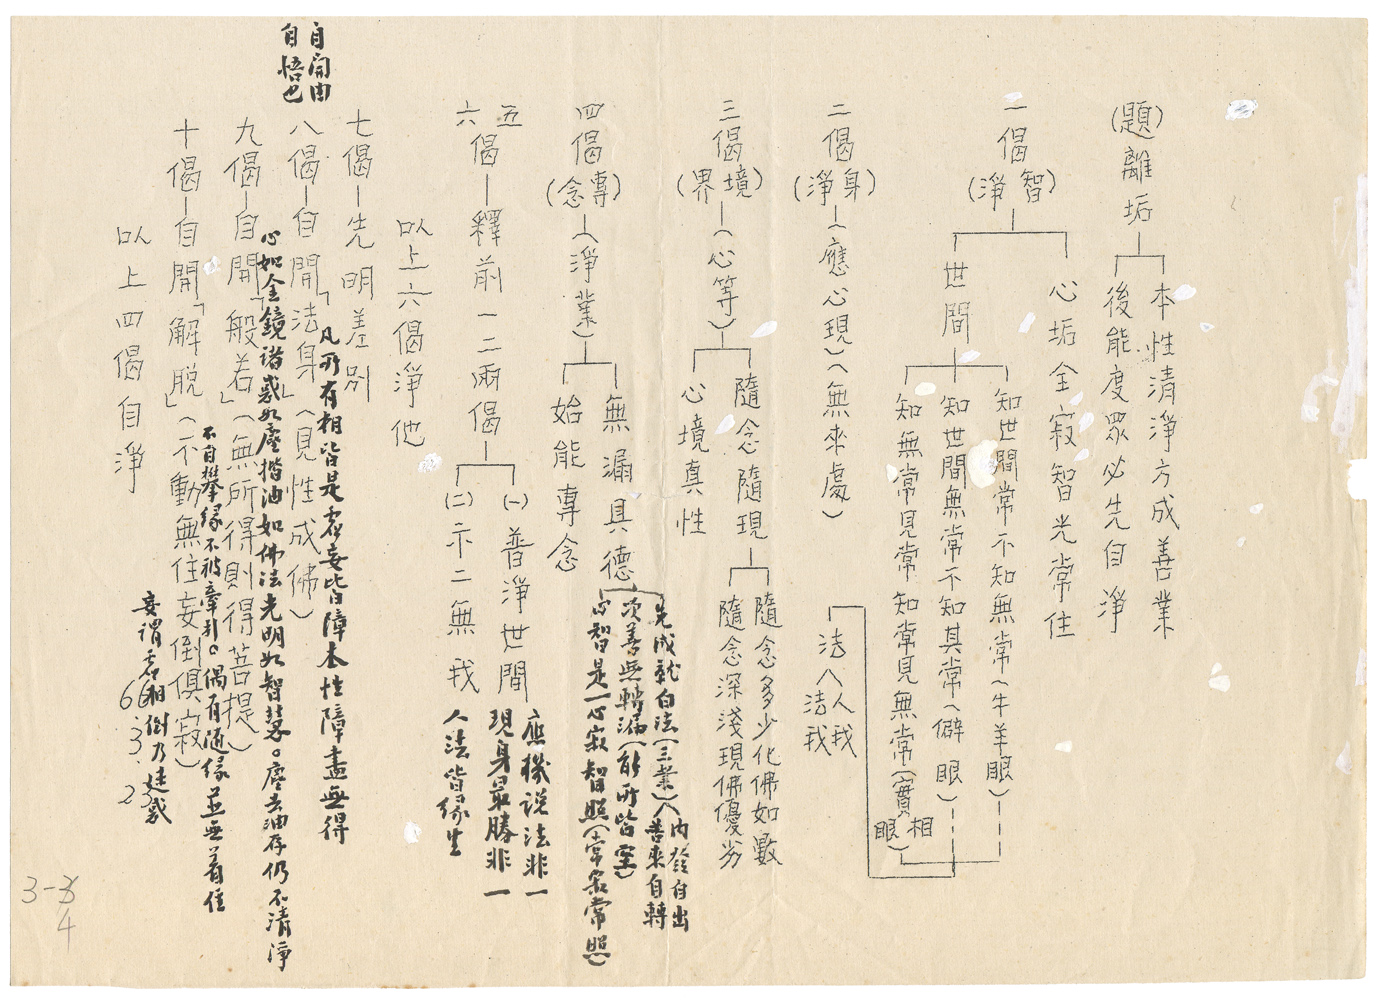 (題)離垢
本性清淨方成善業
後能度眾必先自淨
一偈(智淨)
心垢全寂智光常住
世間
知世間常不知無常(牛羊眼)
知世間無常不知其常(僻眼)
知無常見常知常見無常(實相眼)
二偈(身淨)(應心現)(無來處)
法
人我
法我
三偈(境界)(心等)
隨念隨現
隨念多少化佛如數
隨念深淺現佛優劣
心境真性
四偈(專念)(淨業)
無漏具德
先成就白法(三業)
內發自出
善來自轉
次善無轉漏(能所皆空)
心智是一心寂智照(常寂常照)
始能專念
五六偈—釋前一二兩偈
(一)普淨世間
應機說法非一
現身最勝非一
(二)示二無我
人法皆緣生
以上六偈淨他
七偈—先明差別
八偈—自開「法身」(見性成佛)
凡所有相皆是虛妄皆障本性障盡無得
自開由
自悟也
九偈—自開「般若」(無所得則得菩提)
心如金鏡諸惑如塵揩油如佛法光明如智慧。塵去油存仍不清淨
十偈—自開「解脫」(不動無住妄倒俱寂)
不自攀緣不被牽引。偶有隨緣並無着住
妄謂虛相倒乃迷惑
以上四偈自淨
66.3.23
3-3
4